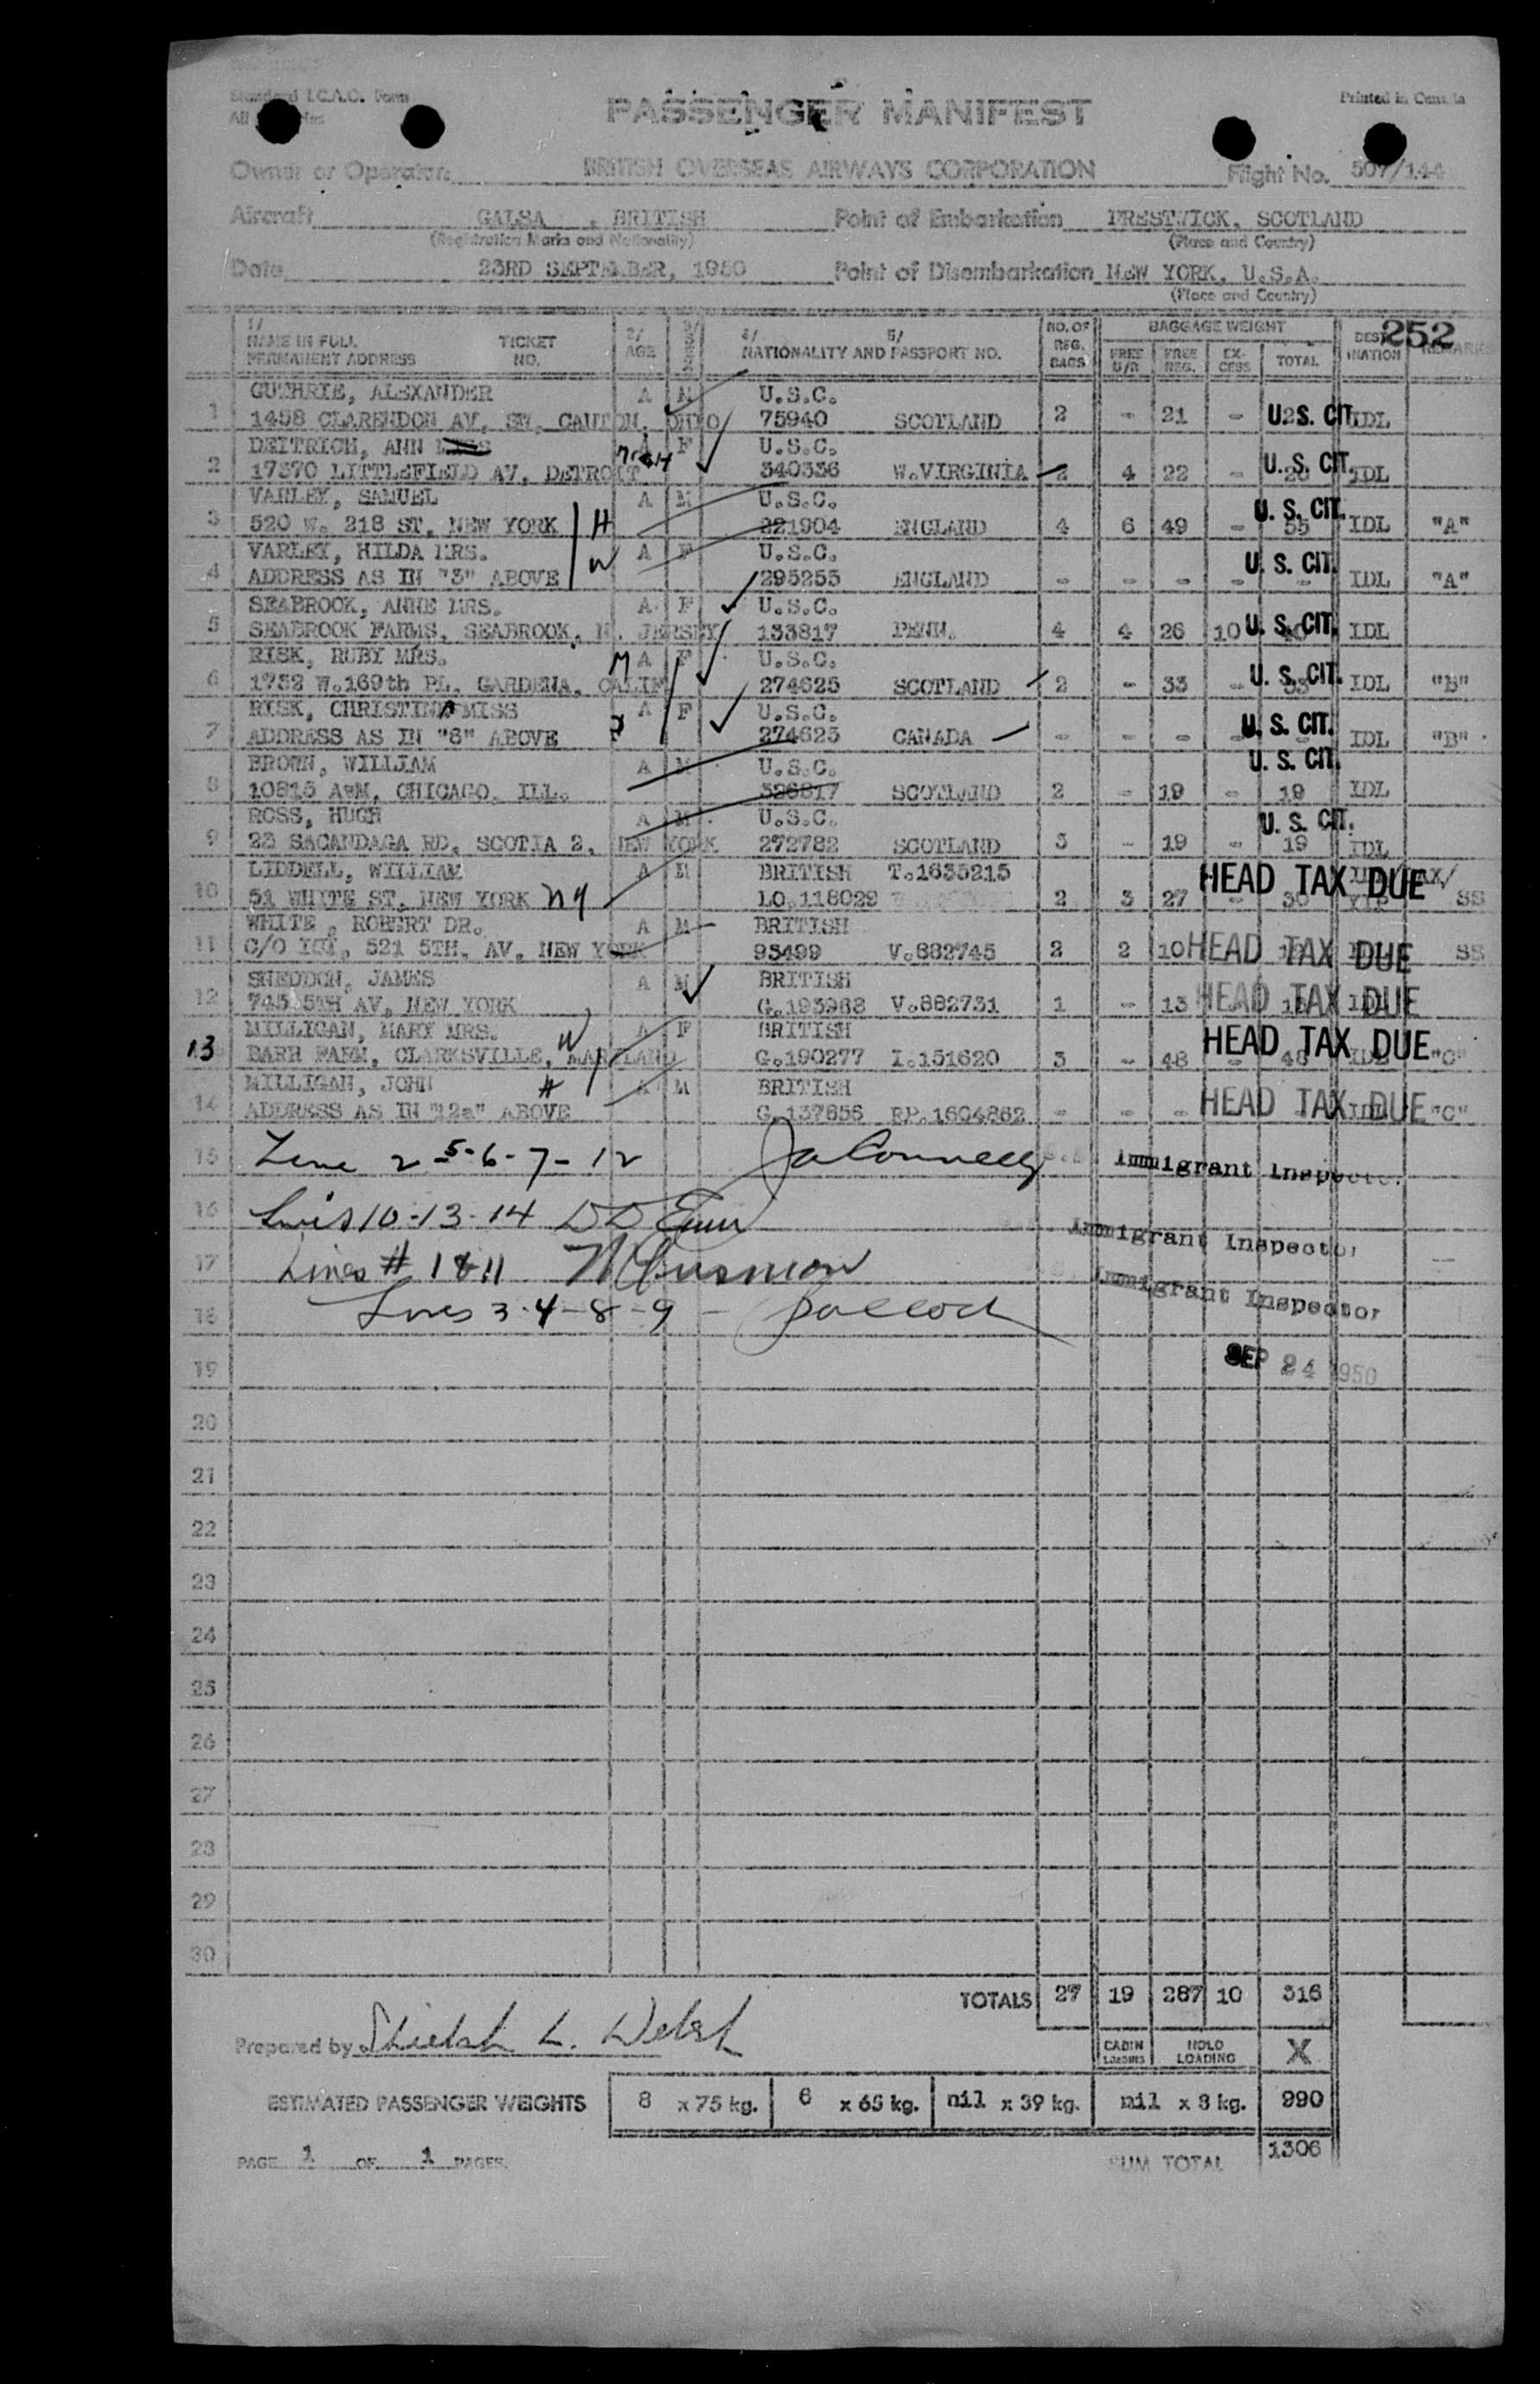 Standard I.C.A.O. Form
Printed in Canada
All
PASSENGER MANIFEST
Owner or Operator: BRITISH OVERSEAS AIRWAYS CORPORATION Flight No. 507/144
Aircraft GALSA , BRITISH Point of Embarkation PRESTWICK, SCOTLAND
(Registration Marks and Nationality) (Place and Country)
Date 23RD SEPTEMBER, 1950 Point of Disembarkation NEW YORK, U.S.A.
(Place and Country)
252
1/ NAME IN FULL PERMANENT ADDRESS TICKET NO. 2/ AGE 3/ SEX 4/ 5/ NATIONALITY AND PASSPORT NO. NO. OF REG. BAGS BAGGAGE WEIGHT FREE U/R FREE REG. EX-CESS TOTAL DESTINATION REMARKS
GUTHRIE, ALEXANDER A M U.S.C.
1 1458 CLARENDON AV, SW, CAUTON, OHIO 75940 SCOTLAND 2 - 21 - U.S. CIT. IDL
DEITRICH, ANN F U.S.C.
2 17370 LITTLEFIELD AV, DETROIT 340336 W.VIRGINIA 2 4 22 - U. S. CIT. IDL
VARLEY, SAMUEL A M U.S.C.
3 520 W. 218 ST, NEW YORK H 321904 ENGLAND 4 6 49 - 55 U. S. CIT. IDL "A"
VARLEY, HILDA MRS. A F U.S.C.
4 ADDRESS AS IN "3" ABOVE W 295255 ENGLAND - - - - - U. S. CIT. IDL "A"
SEABROOK, ANNE MRS. A F U.S.C.
5 SEABROOK FARMS, SEABROOK, N. JERSEY 133817 PENN. 4 4 26 10 U. S. CIT. IDL
RISK, RUBY MRS. M A F U.S.C.
6 1752 W.169th PL, GARDENA, CALIF 274625 SCOTLAND 2 - 33 - 33 U. S. CIT. IDL "B"
RISK, CHRISTINA MISS A F U.S.C.
7 ADDRESS AS IN "6" ABOVE 274625 CANADA - - - - U. S. CIT. IDL "B"
BROWN, WILLIAM A M U.S.C. U. S. CIT.
8 10815 AvM, CHICAGO, ILL. 326817 SCOTLAND 2 - 19 - 19 IDL
ROSS, HUGH A M U.S.C. U. S. CIT.
9 23 SACANDAGA RD, SCOTIA 2, NEW YORK 272782 SCOTLAND 3 - 19 - 19 IDL
LIDDELL, WILLIAM A M BRITISH T.1635215 HEAD TAX DUE
10 51 WHITE ST, NEW YORK NY LO.118029 2 3 27 - 30 SS
WHITE, ROBERT DR. A M BRITISH
11 C/O ICI, 521 5TH, AV, NEW YORK 93499 V.882745 2 2 10 HEAD TAX DUE SS
SHEDDON, JAMES A M BRITISH
12 745 5TH AV, NEW YORK G.193968 V.882731 1 - 13 HEAD TAX DUE
MILLIGAN, MARY MRS. W A F BRITISH
13 BARR FARM, CLARKSVILLE, MARYLAND G.190277 I.151620 3 - 48 - 48 HEAD TAX DUE "C"
MILLIGAN, JOHN H A M BRITISH
14 ADDRESS AS IN "12a" ABOVE G.137855 RP.1604862 - - - HEAD TAX DUE "C"
15 Line 2 5-6-7-12 Immigrant Inspector
16 Lines 10-13-14 Immigrant Inspector
17 Lines # 1 & 11 Immigrant Inspector
18 Lines 3-4-8-9 -
19 SEP 24 1950
20
21
22
23
24
25
26
27
28
29
30
TOTALS 27 19 287 10 316
Prepared by Shielah L. Welsh
CABIN LOADING HOLD LOADING X
ESTIMATED PASSENGER WEIGHTS 8 x 75 kg. 6 x 65 kg. nil x 39 kg. nil x 8 kg. 990
PAGE 1 OF 1 PAGES. SUM TOTAL 1306